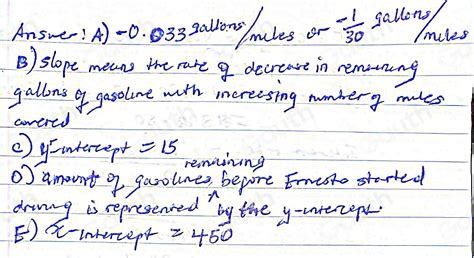 Answer: A) -0.033 gallons/miles or -1/30 gallons/miles
B) Slope means the rate of decrease in remaining
gallons of gasoline with increasing number of miles
covered
C) y-intercept = 15
D) amount of gasolines remaining before Ernesto started
driving is represented by the y-intercept.
E) x-intercept = 450